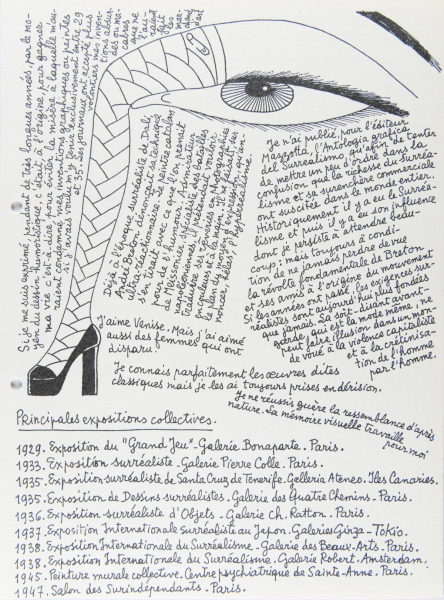 Si je me suis exprimé, pendant de très longues années, par ce mo-
yen du dessin humoristique, c'était à l'origine pour gagner
ma vie c'est-à-dire pour éviter la misère à laquelle m'au-
raient condamné mes inventions graphiques ou peintes
si j'avais voulu m'y tenir exclusivement entre 29
et 35. Les journaux ont accepté plus
volontiers mes inven-
tions absur-
des ou ma-
cabres
que ne
l'au-
raient
fait
les
mar-
chands
d'art
Déjà à l'époque surréaliste de Dali
André Breton dénonçait sa technique
ultra-réactionnaire. Le peintre Catalan
s'en tirait avec ce que l'on prenait
pour de l'humour. Admirateur
de Meissonier, spécialiste des batailles
napoléoniennes, il prétendait vouloir
traduire ses univers en photographies
en couleurs à la main. Il
le plus expression
hélas! l'hyperréalisme
Je n'ai publié, pour l'éditeur
Mazzotta, l'Antologia grafica
del Surrealismo, qu'afin de tenter
de mettre un peu d'ordre dans la
confusion que la richesse du Surréa-
lisme et sa surenchère commerciale
ont suscitée dans le monde entier.
Historiquement il y a eu le Surréa-
lisme et puis il y a eu son influence
dont je persiste à attendre beau-
coup; mais toujours à condi-
tion de ne jamais perdre de vue
la révolte fondamentale de Breton
et ses amis à l'origine du mouvement.
Si les années ont passé, les exigences sur-
réalistes sont aujourd'hui plus fondées
que jamais. La soit-disant avant-
garde, qui est la mode même, ne
peut faire illusion dans un mon-
de voué à la violence capitaliste
et à la crétinisa-
tion de l'homme
par l'homme.
J'aime Venise. Mais j'ai aimé
aussi des femmes qui ont
disparu.
Je connais parfaitement les œuvres dites
classiques mais je les ai toujours prises en dérision.
Je ne réussis guère la ressemblance d'après
nature. Ma mémoire visuelle travaille
pour moi
Principales expositions collectives.
1929. Exposition du "Grand Jeu" - Galerie Bonaparte - Paris.
1933. Exposition surréaliste - Galerie Pierre Colle - Paris.
1935. Exposition surréaliste de Santa Cruz de Tenerife. Gelleria Ateneo. Iles Canaries.
1935. Exposition de Dessins surréalistes. Galerie des Quatre Chemins - Paris.
1936. Exposition surréaliste d'Objets - Galerie Ch. Ratton - Paris.
1937. Exposition Internationale Surréaliste au Japon. Galeries Ginza - Tokio.
1938. Exposition Internationale du Surréalisme - Galerie des Beaux-Arts - Paris.
1938. Exposition Internationale du Surréalisme. Galerie Robert. Amsterdam.
1945. Peinture murale collective. Centre psychiatrique de Sainte-Anne. Paris.
1947. Salon des Surindépendants - Paris.